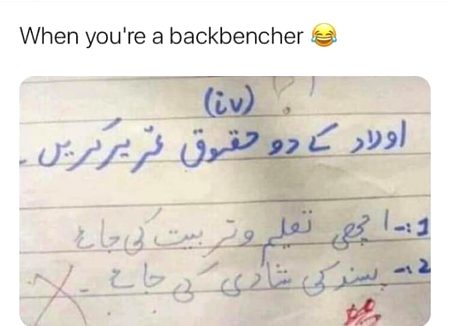 When you're a backbencher 😂
(iv)
اولاد کے دو حقوق تحریر کریں ۔
1:- اچھی تعلیم و تربیت کی جائے
2:- پسند کی شادی کی جائے ۔